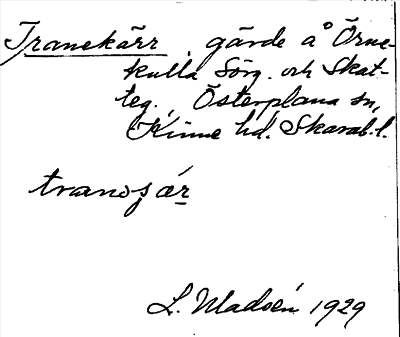 Tranekärr, gärde å Örne-
kulla Sörg. och Skat-
teg., Österplana sn,
Kinne hd. Skarab. l.
L. Madsén 1929